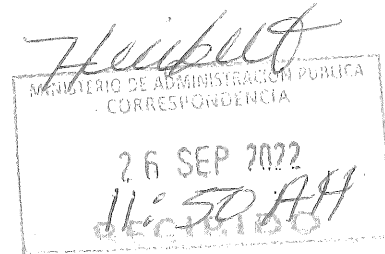 Heriberto
MINISTERIO DE ADMINISTRACIÓN PÚBLICA
CORRESPONDENCIA
26 SEP 2022
11:50 AM
RECIBIDO